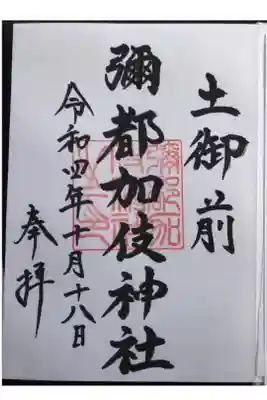 土御前
彌都加伎神社
令和四年十月十八日
奉拝